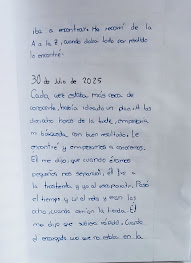 iba a encontrarlo. Me recorrí de la
A a la Z, cuando daba todo por perdido
lo encontré.
30 de Julio de 2025
Cada vez estaba más cerca de
conocerte, había ideado un plan. A las
dieciocho horas de la tarde, empezaría
mi búsqueda, con buen resultado. Le
encontré y empezamos a conocernos.
El me dijo, que cuando éramos
pequeños nos separaron, él fue a
la trastienda y yo al escaparate. Pasó
el tiempo y el reloj y eran las
ocho, cuando cerraron la tienda. El
me dijo que subiera rápido, cuando
el encargado que no estaba en la